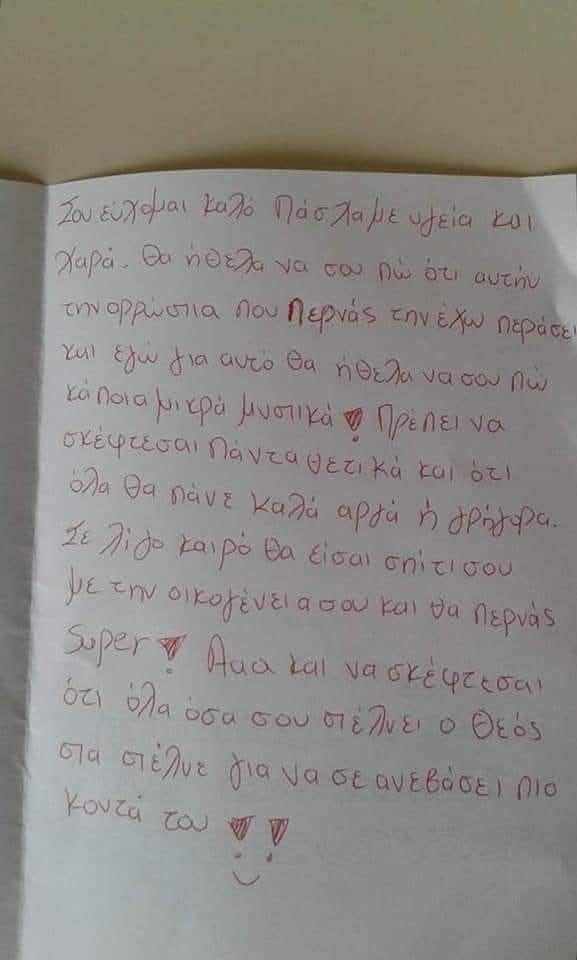 Σου εύχομαι καλό Πάσλα με υγεία και
χαρά. Θα ήθελα να σου πώ ότι αυτήν
την ορρώστια που Περνάς την έχω περάσει
και εγώ για αυτό θα ήθελα να σου πώ
κάποια μικρά μυστικά! Πρέπει να
σκέφτεσαι πάντα θετικά και ότι
όλα θα πάνε καλά αργά ή γρήγορα.
Σε λίγο καιρό θα είσαι σπίτι σου
με την οικογένεια σου και θα περνάς
Super! Ααα και να σκέφτεσαι
ότι όλα όσα σου στέλνει ο Θεός
στα στέλνε για να σε ανεβάσει πιο
κοντά του!!